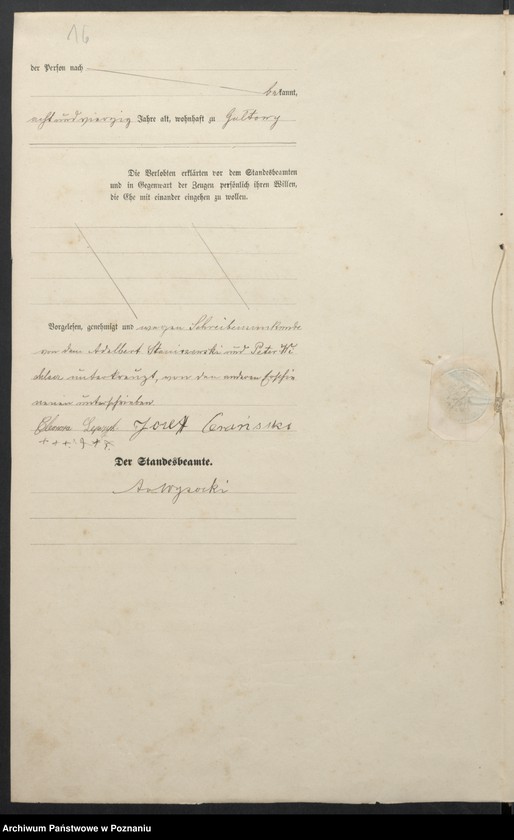 16
der Person nach
bekannt,
achtundvierzig Jahre alt, wohnhaft zu Gultowy
Die Verlobten erklärten vor dem Standesbeamten
und in Gegenwart der Zeugen persönlich ihren Willen,
die Ehe mit einander eingehen zu wollen.
Vorgelesen, genehmigt und wegen Schreibensunkunde
von dem Adelbert und Peter
unterkreuzt, von den anderen Erschie
nenen unterschrieben
Josef
+++ +++
Der Standesbeamte.
Wysocki
Archiwum Państwowe w Poznaniu